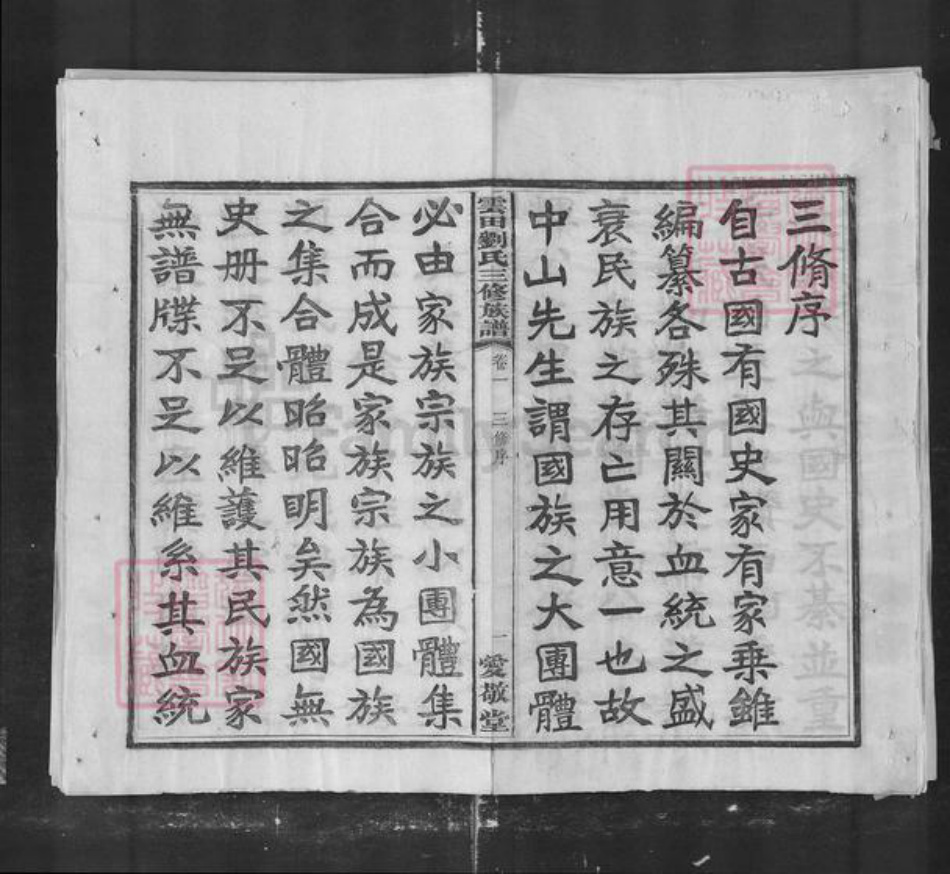 三脩序
自古國有國史家有家乗雖
編纂各殊其關於血統之盛
衰民族之存亡用意一也故
中山先生謂國族之大團體
雲田劉氏三修族譜 卷一 三修序 一 愛敬堂
必由家族宗族之小團體集
合而成是家族宗族為國族
之集合體昭昭明矣然國無
史册不足以維護其民族家
無譜牒不足以維系其血統